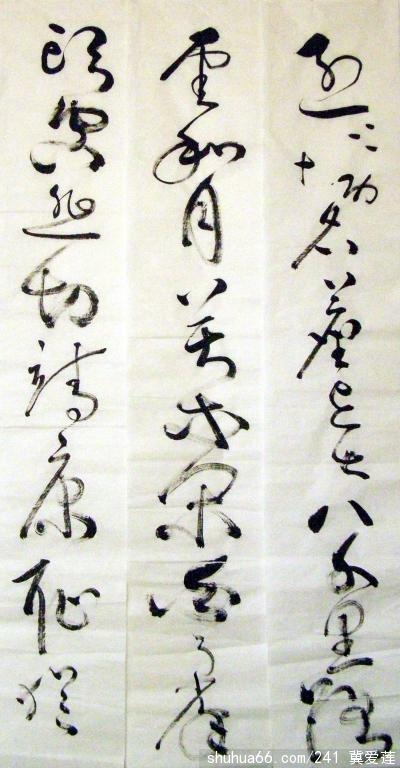 烈三十功名塵与土八千里路
雲和月莫等閒白了少年
頭空悲切靖康耻猶
shuhua66.com/241 冀爱莲